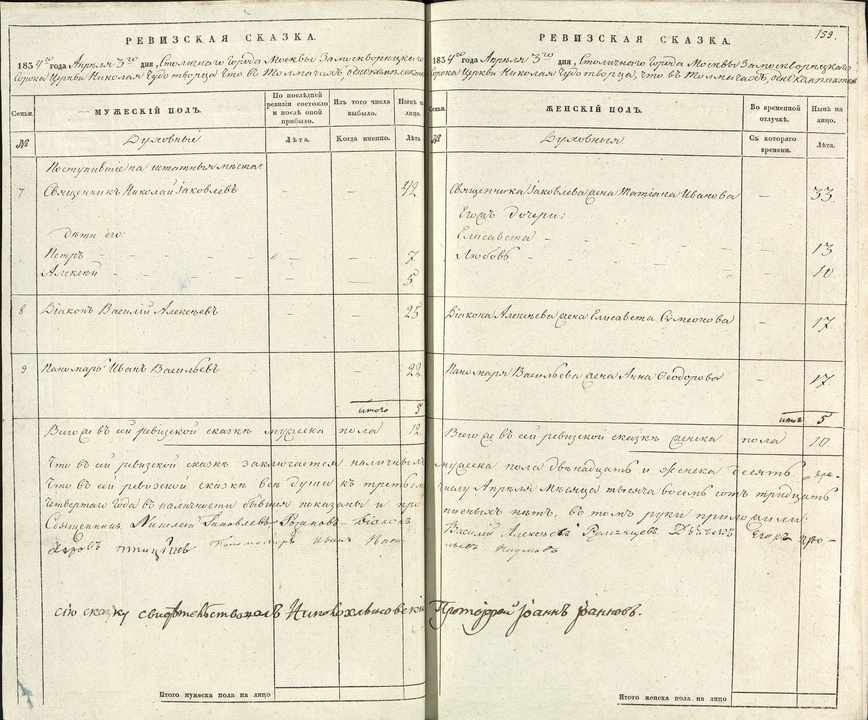 159.
РЕВИЗСКАЯ СКАЗКА.
1834го года Апреля 3го дня, Столичнаго Города Москвы Замоскворецкаго
Сорока Церкви Николая Чудотворца что въ Толмачахъ, однокомплект
Семьи.
МУЖЕСКІЙ ПОЛЪ.
По последней ревизіи состояло и после оной прибыло.
Изъ того числа выбыло.
Ныне на лицо.
№
Духовные
Лѣта.
Когда именно.
Лѣта
Поступившіе на штатныя мѣста:
7 Священникъ Николай Іаковлевъ – – 42
дѣти его:
Петръ – – 7
Алексѣй – – 5
8 Діаконъ Василій Алексѣевъ 25
9 Пономарь Иванъ Васильевъ 22
итого 5
Всего же въ сей ревизской сказкѣ мужеска пола 12
РЕВИЗСКАЯ СКАЗКА.
1834го года Апреля 3го дня, Столичнаго Города Москвы Замоскворецкаго
Сорока Церкви Николая Чудотворца, что въ Толмачахъ, однокомплектн
Семьи.
ЖЕНСКІЙ ПОЛЪ.
Во временной отлучке.
Ныне на лицо.
№
Духовныя
Съ котораго времени.
Лѣта.
Священника Іаковлева жена Татіана Иванова – 33
Егожъ дочери:
Елисавета – – 13
Любовь – – 10
Діакона Алексѣева жена Елисавета Симеонова – 17
Пономаря Васильева жена Анна Феодорова – 17
итого 5
Всего же въ сей ревизской сказкѣ женска пола 10
Что въ сей ревизской сказкѣ заключается наличныхъ мужеска пола двѣнадцать и женска десять
Что въ сей ревизской сказкѣ все души къ третьему числу Апреля мѣсяца тысяча восемь сотъ тридцать
четвертаго года въ наличности бывшія показаны и прописныхъ нѣтъ, въ томъ руки приложили:
Священникъ Николай Іаковлевъ Розановъ Діаконъ Василій Алексѣевъ Румянцевъ Дьячекъ Егоръ
Птицынъ Пономарь Иванъ Васильевъ Наумовъ
сію сказку свидѣтельствовалъ Протоіерей Іоаннъ
Итого мужеска пола на лицо
Итого женска пола на лицо